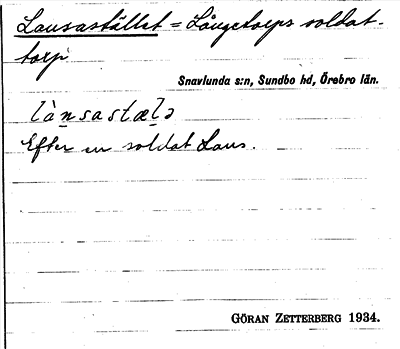 Lansastället = Långetorps soldat-
torp
Snavlunda s:n, Sundbo hd, Örebro län.
lànsastælə
Efter en soldat Lans.
GÖRAN ZETTERBERG 1934.